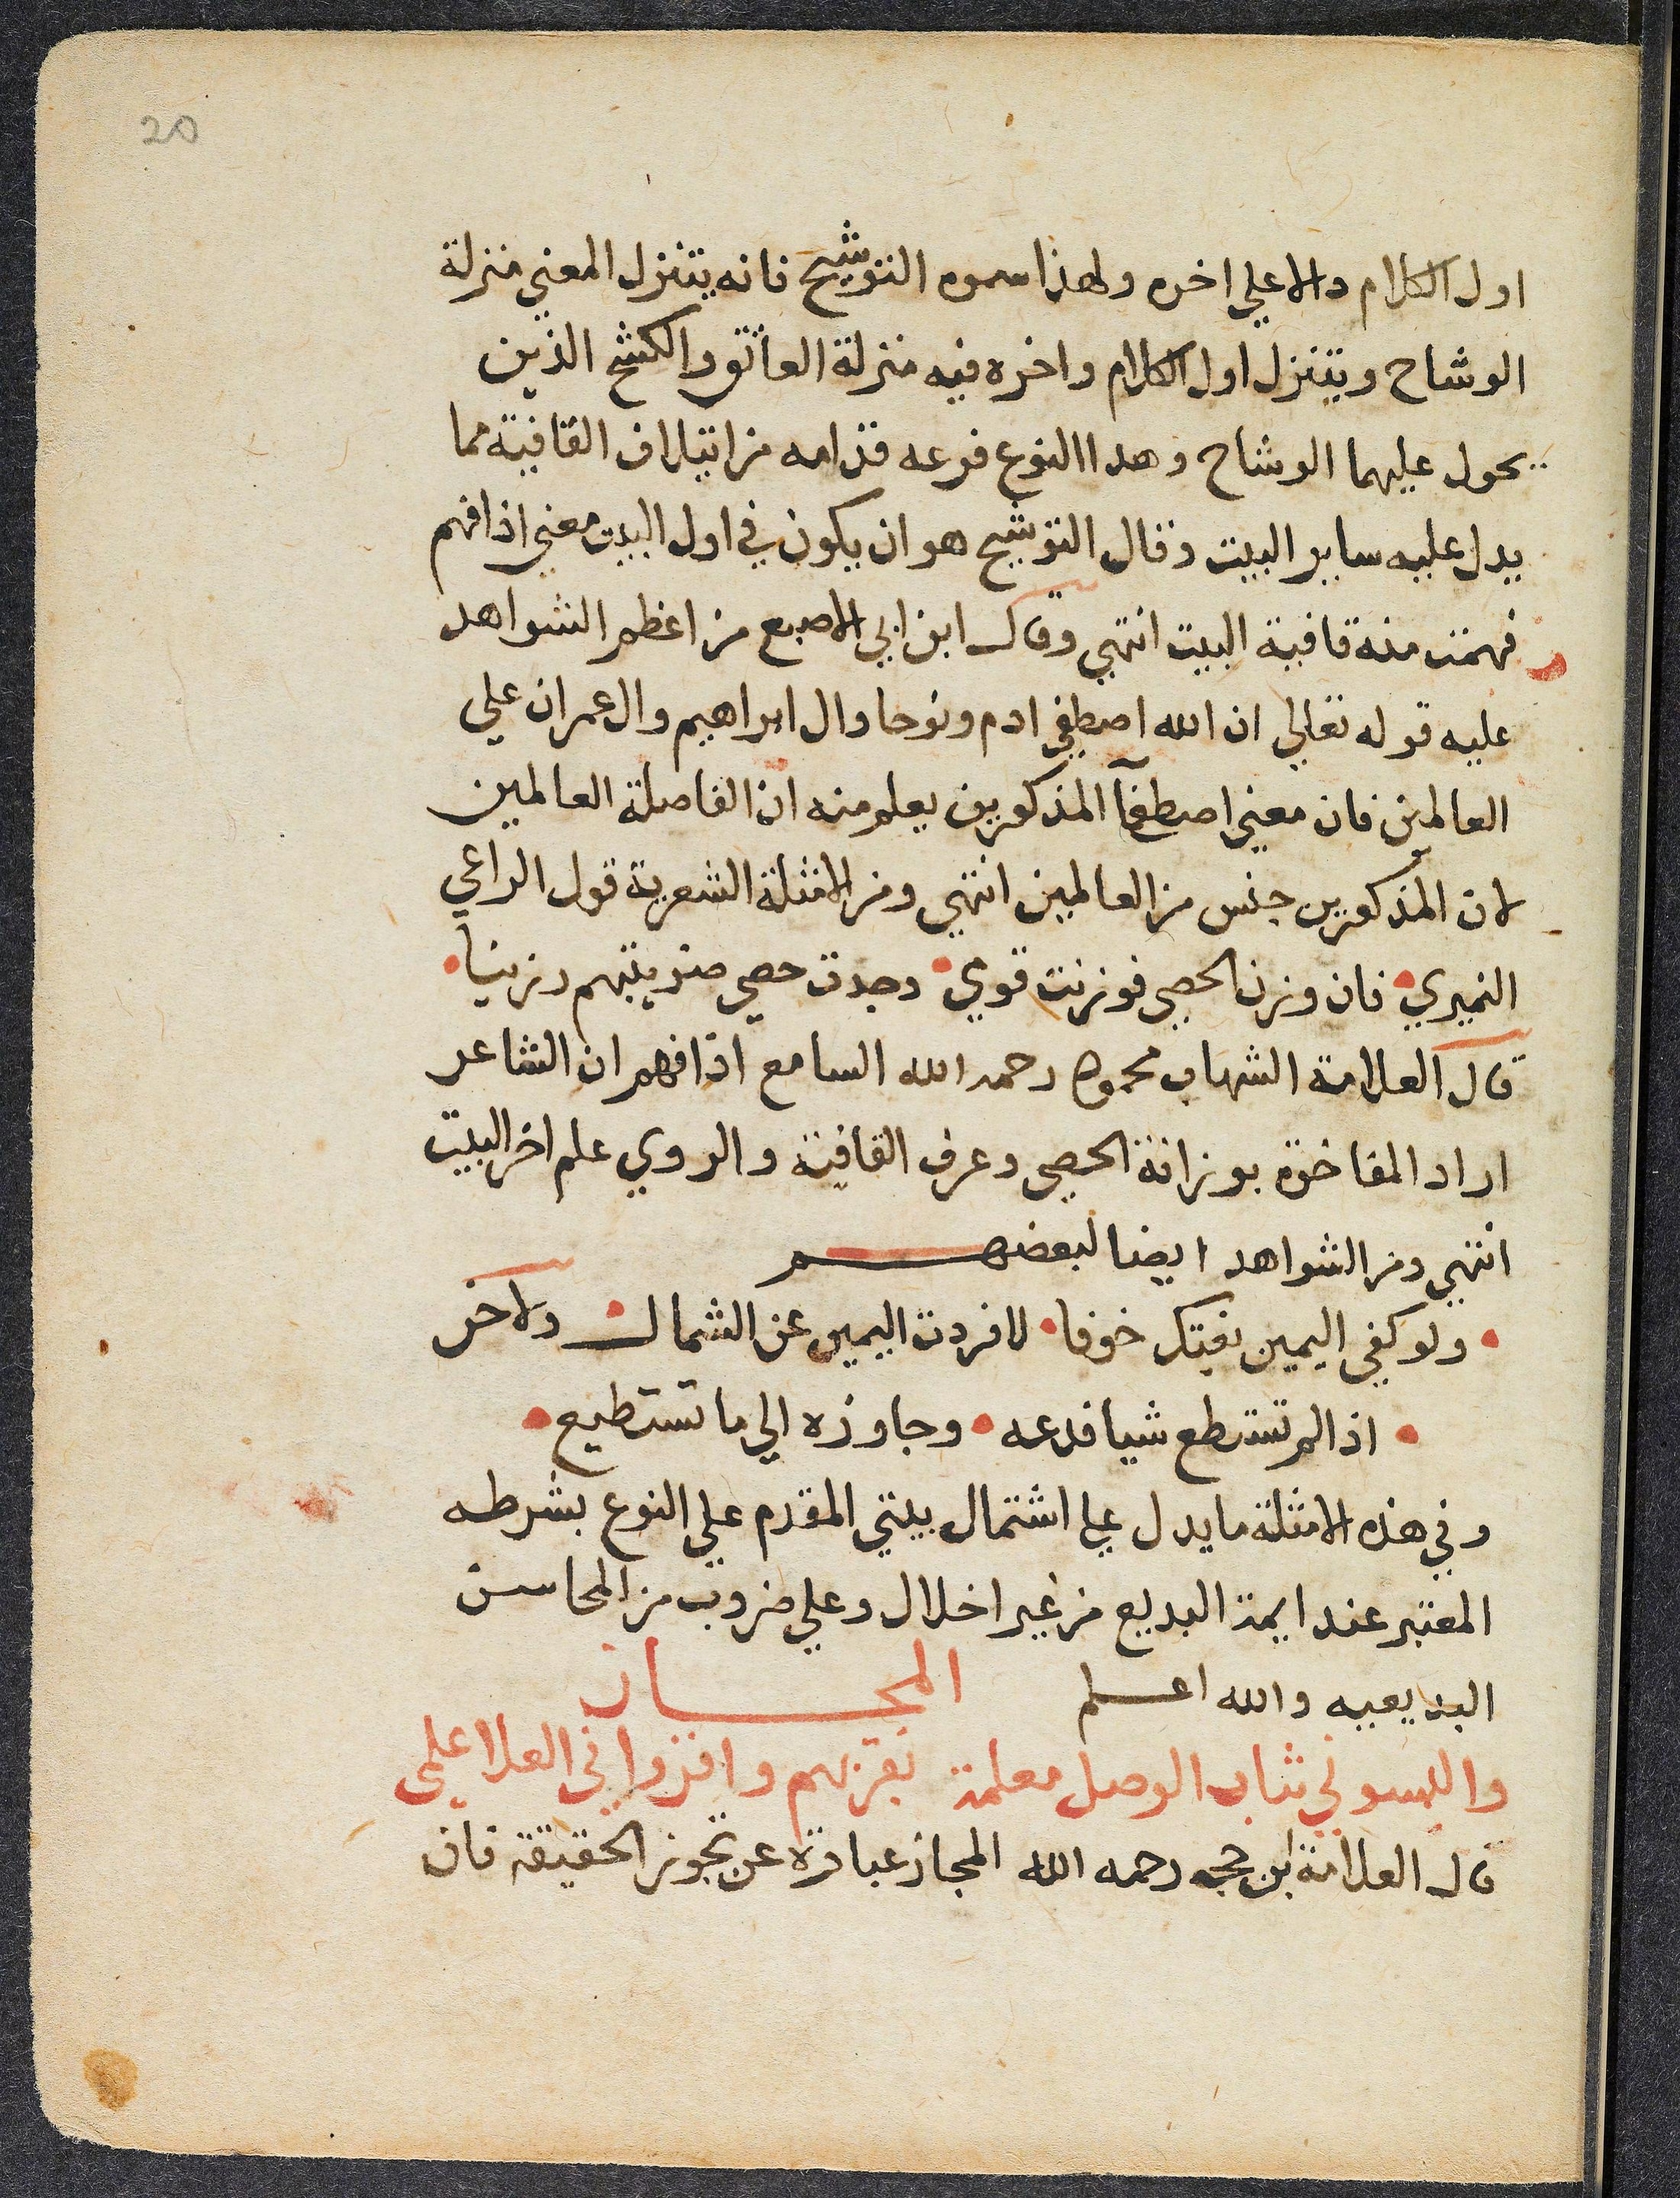 20
اول الكلام دالا علي اخره ولهذا سموه التوشيح فانه يتنزل المعني منزلة
الوشاح ويتنزل اول الكلام واخره فيه منزلة العاتق والكشح الذين
يحول عليهما الوشاح وهدا النوع فرعه قدامه من ايتلاف القافية مما
يدل عليه ساير البيت وقال التوشيح هو ان يكون في اول البيت معني اذا فهم
فهمت منه قافية البيت انتهي وقال ابن ابي الاصبع من اعظم الشواهد
عليه قوله تعالي ان الله اصطفي ادم ونوحا وال ابراهيم وال عمران علي
العالمين فان معني اصطفآ المذكورين يعلم منه ان الفاصلة العالمين
لان المذكورين جنس من العالمين انتهي ومن الامثلة الشعرية قول الراعي
النميري فان وزن الحصي فوزنت قومي وجدت حصي ضريبتهم رزينا
قال العلامة الشهاب محمود رحمه الله السامع اذا فهم ان الشاعر
اراد المفاخرة بوزانة الحصي وعرف القافية والروي علم اخر البيت
انتهي ومن الشواهد ايضا لبعضهم
ولو كفي اليمين بغتك خوفا لافردت اليمين عن الشمال ولاخر
اذا لم تستطع شيا فدعه وجاوزه الي ما تستطيع
وفي هذه الامثلة ما يدل علي اشتمال بيتي المقدم علي النوع بشرطه
المعتبر عند ايمة البديع من غير اخلال وعلي ضروب من المحاسن
البديعيه والله اعلم المجاز
والبسوني ثياب الوصل معلمة بقربهم واقزوا في العلا علمي
قال العلامة ابن حجه رحمه الله المجاز عبارة عن تجوز الحقيقة فان